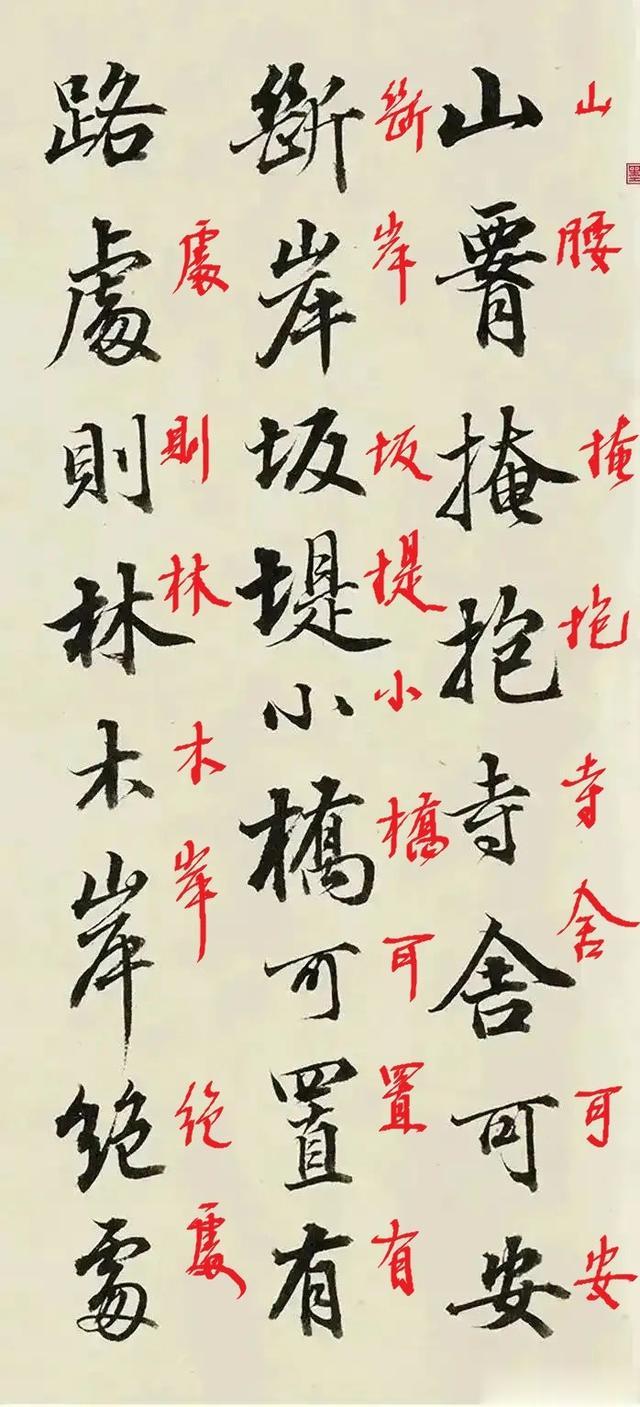 山腰掩抱寺舍可安
山腰掩抱寺舍可安
斷岸坂堤小橋可置有
斷岸坂堤小橋可置有
處則林木岸絕處
路處則林木岸絕處